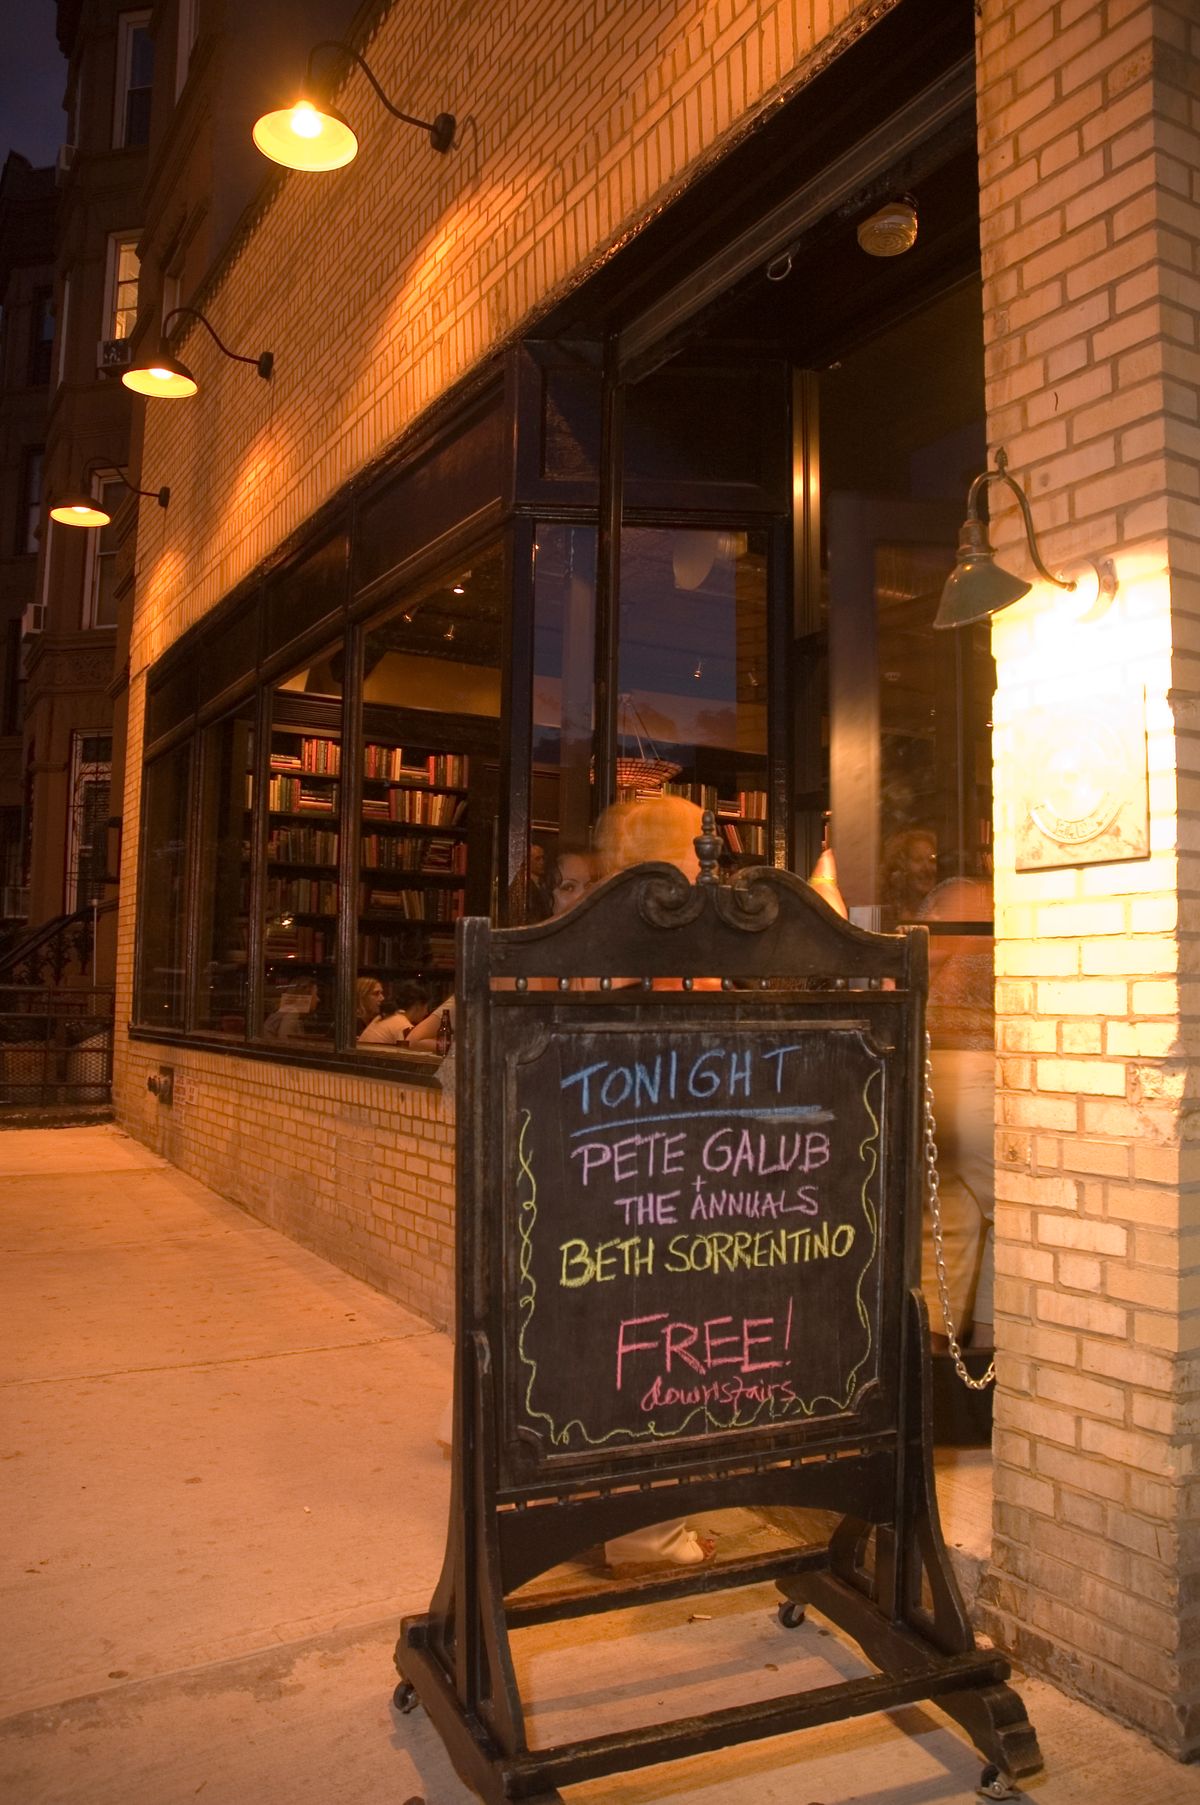 TONIGHT
PETE GALUB
+
THE ANNUALS
BETH SORRENTINO
FREE!
downstairs